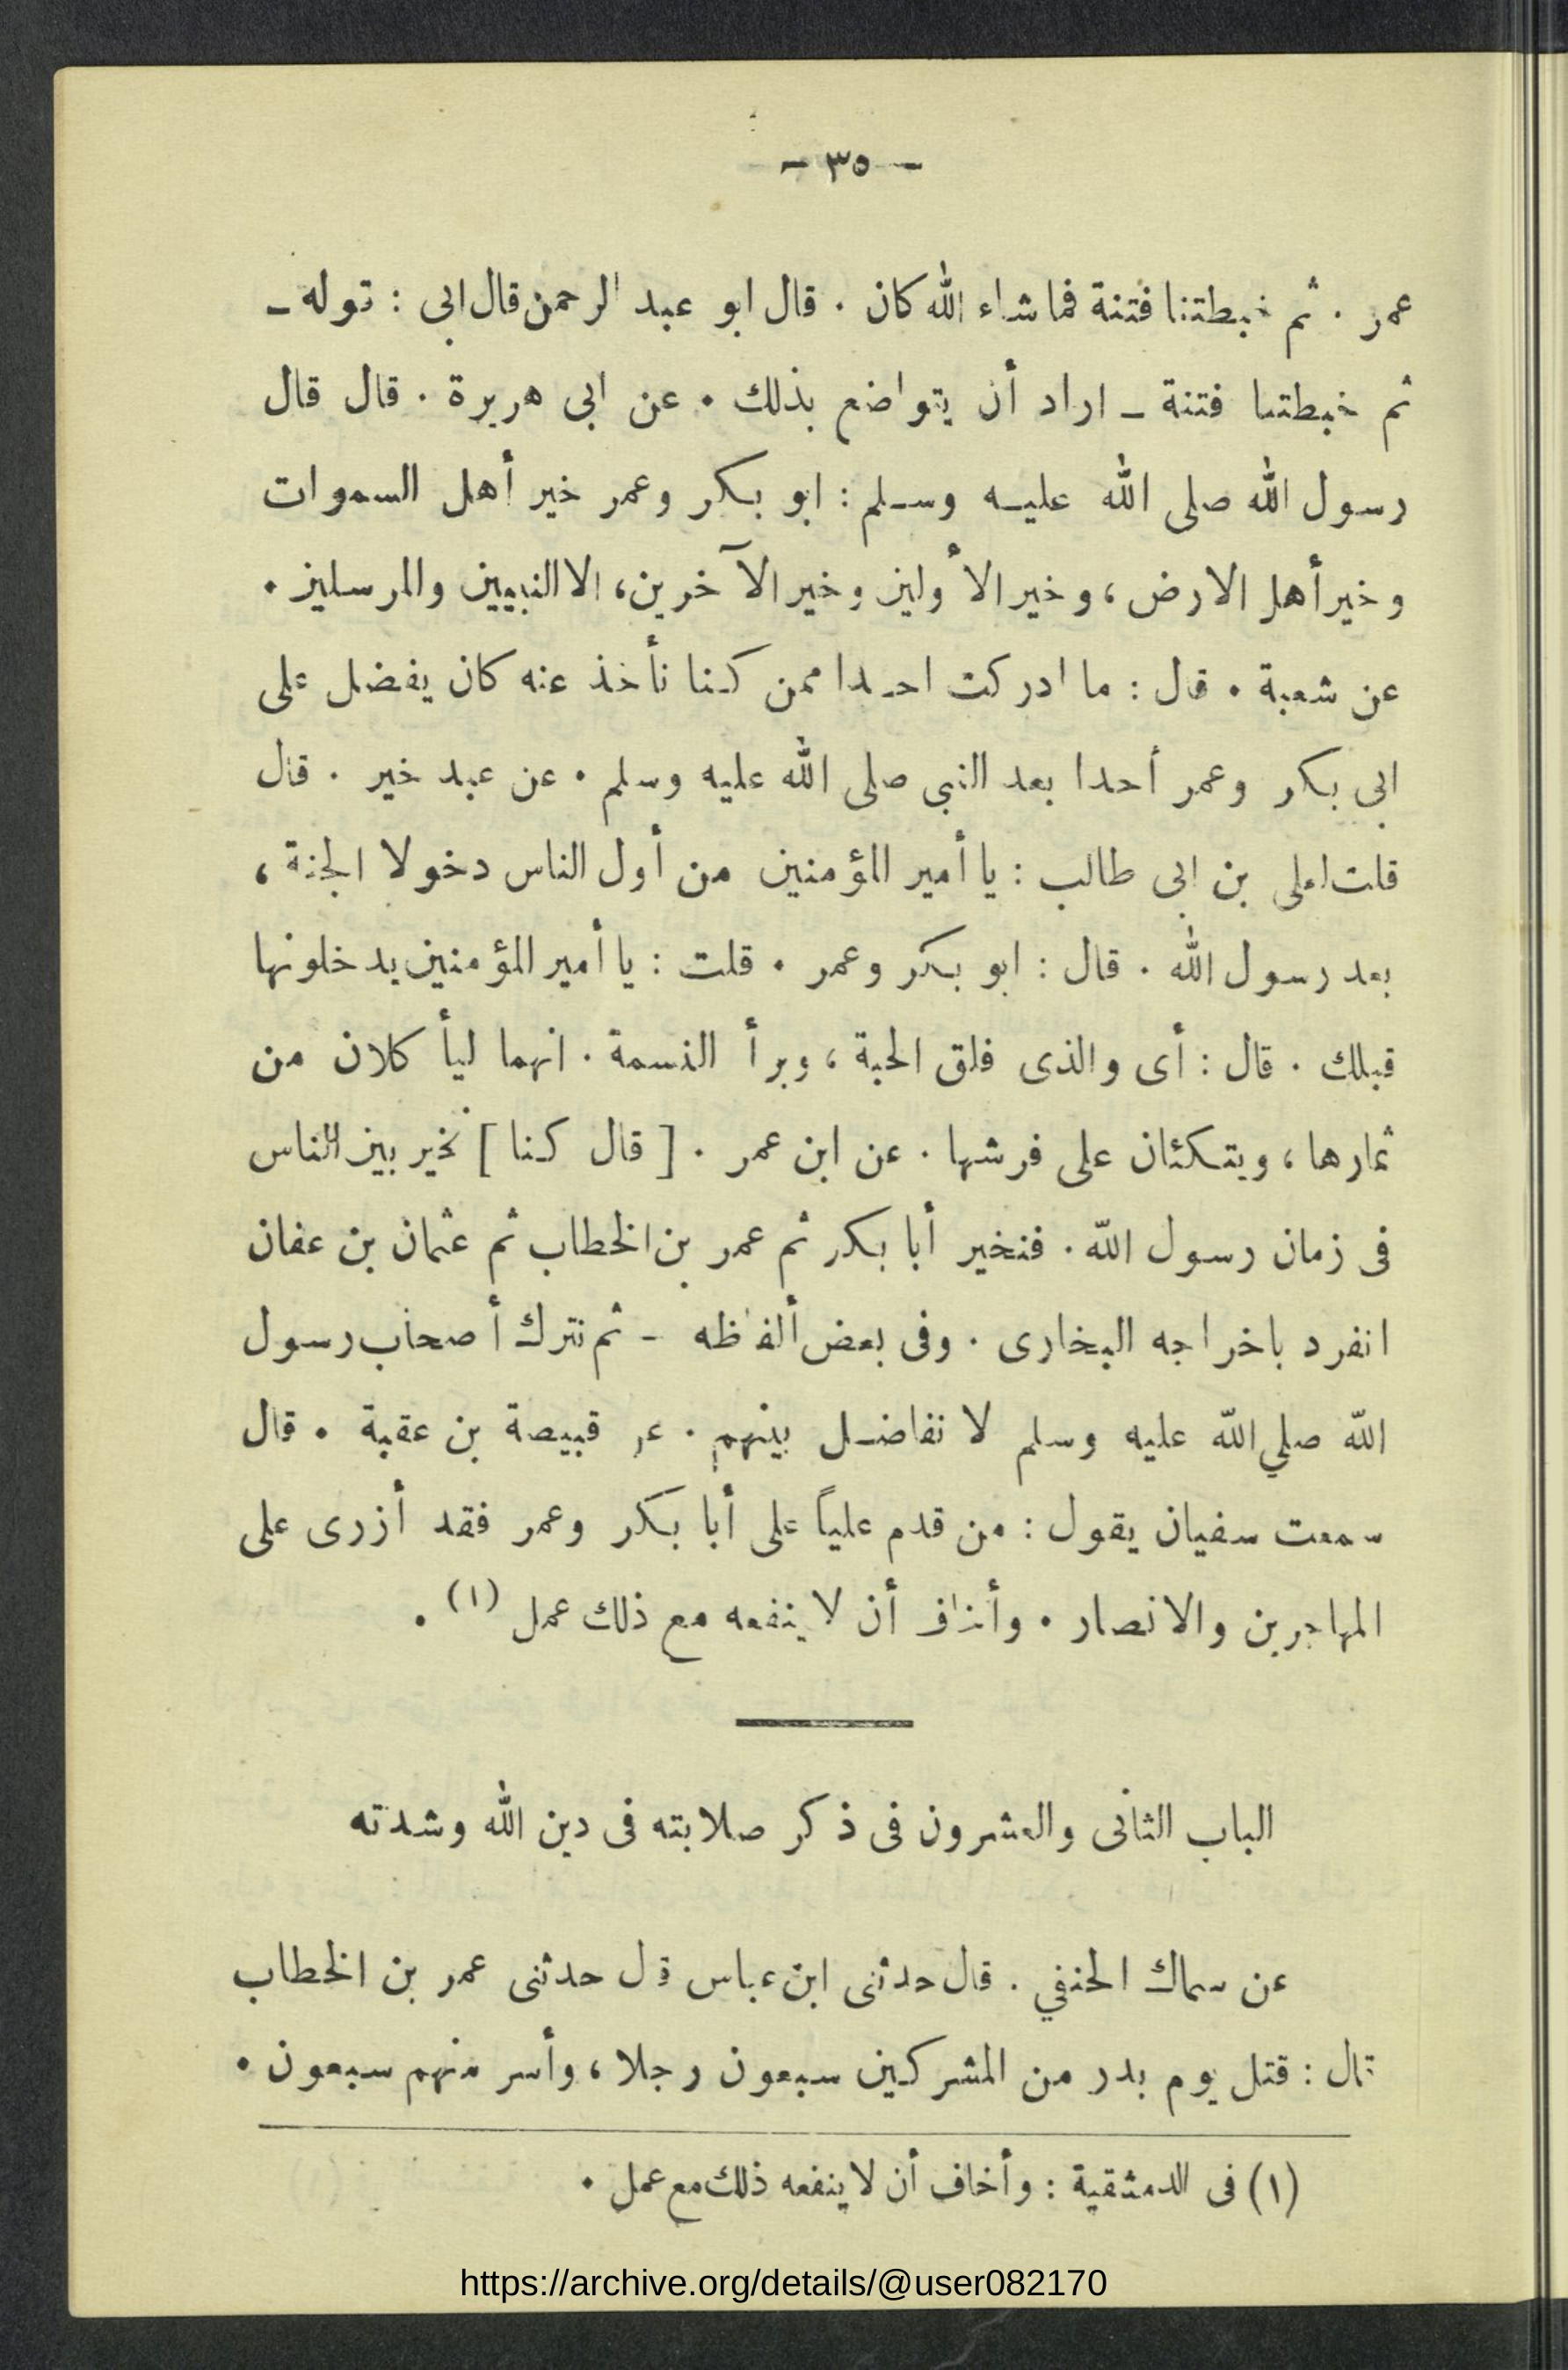 - ٣٥ -
عمر . ثم خبطتنا فتنة فما شاء الله كان . قال ابو عبد الرحمن قال ابى : قوله -
ثم خبطتنا فتنة - اراد أن يتواضع بذلك . عن ابى هريرة . قال قال
رسول الله صلى الله عليه وسلم : ابو بكر وعمر خير أهل السموات
وخير أهل الارض ، وخير الأولين وخير الآخرين ، الا النبيين والمرسلين .
عن شعبة . قال : ما ادركت احدا ممن كنا نأخذ عنه كان يفضل على
ابى بكر وعمر أحدا بعد النبى صلى الله عليه وسلم . عن عبد خير . قال
قلت لعلى بن ابى طالب : يا أمير المؤمنين من أول الناس دخولا الجنة ،
بعد رسول الله . قال : ابو بكر وعمر . قلت : يا أمير المؤمنين يدخلونها
قبلك . قال : أى والذى فلق الحبة ، وبرأ النسمة . انهما ليأكلان من
ثمارها ، ويتكئان على فرشها . عن ابن عمر . [ قال كنا ] نخير بين الناس
فى زمان رسول الله . فنخير أبا بكر ثم عمر بن الخطاب ثم عثمان بن عفان
انفرد باخراجه البخارى . وفى بعض ألفاظه - ثم نترك أصحاب رسول
الله صلي الله عليه وسلم لا نفاضل بينهم . عن قبيصة بن عقبة . قال
سمعت سفيان يقول : من قدم علياً على أبا بكر وعمر فقد أزرى على
المهاجرين والانصار . وأخاف أن لا ينفعه مع ذلك عمل (١) .
الباب الثانى والعشرون فى ذكر صلابته فى دين الله وشدته
عن سماك الحنفي . قال حدثنى ابن عباس قال حدثنى عمر بن الخطاب
قال : قتل يوم بدر من المشركين سبعون رجلا ، وأسر منهم سبعون .
(١) فى الدمشقية : وأخاف أن لا ينفعه ذلك مع عمل .
https://archive.org/details/@user082170